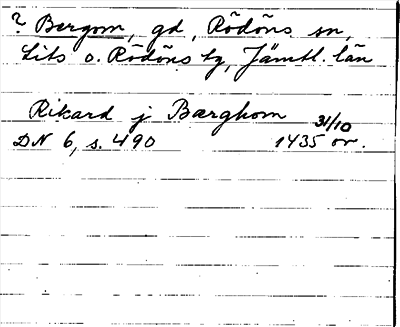 ? Bergom, gd, Rödöns sn,
Lits o. Rödöns tg, Jämtl. län
Rikard j Barghom 31/10
DN 6, s. 490 1435 or.